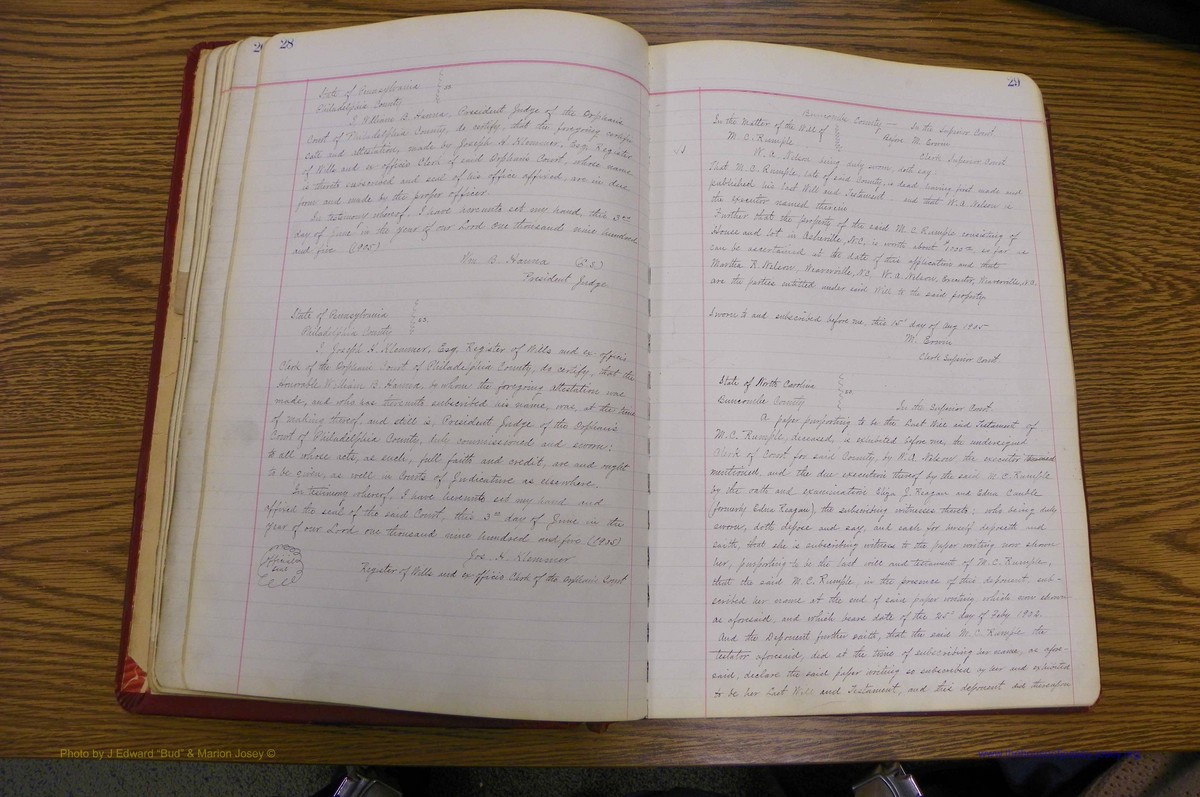 28
State of Pennsylvania
Philadelphia County } ss
I William B. Hanna, President Judge of the Orphans
Court of Philadelphia County, do certify, that the foregoing certifi-
cate and attestation, made by Joseph H. Klemmer, Esq. Register
of Wills and ex officio Clerk of said Orphans Court, whose name
is thereto subscribed and seal of his office affixed, are in due
form and made by the proper officer.
In testimony whereof, I have hereunto set my hand, this 3rd
day of June in the year of our Lord one thousand nine hundred
and five (1905)
Wm B. Hanna
President Judge
State of Pennsylvania
Philadelphia County } ss.
I, Joseph H. Klemmer, Esq. Register of Wills and ex-officio
Clerk of the Orphans Court of Philadelphia County, do certify, that the
Honorable William B. Hanna, by whom the foregoing attestation was
made, and who has thereunto subscribed his name, was, at the time
of making thereof and still is, President Judge of the Orphans
Court of Philadelphia County, duly commissioned and sworn:
to all whose acts, as such, full faith and credit, are and ought
to be given, as well in Courts of Judicature as elsewhere.
In testimony whereof, I have hereunto set my hand and
affixed the seal of the said Court, this 3rd day of June in the
year of our Lord one thousand nine hundred and five (1905)
Official
Seal
Jos. H. Klemmer
Register of Wills and ex officio Clerk of the Orphans Court
29
Buncombe County — In the Superior Court
In the Matter of the Will of
Before M. Erwin
M. C. Rumple
Clerk Superior Court
W. A. Nelson being duly sworn, doth say:
That M. C. Rumple, late of said County, is dead, having first made and
published his Last Will and Testament and that W. A. Nelson is
the executor named therein
Further that the property of the said M. C. Rumple consisting of
House and lot in Asheville, N.C., is worth about so far as
can be ascertained at the date of this application and that
Martha R. Nelson, Weaverville, N.C. W. A. Nelson, Executor, Weaverville, N.C.
are the parties entitled under said Will to the said property.
Sworn to and subscribed before me, this 15th day of Aug 1905
M. Erwin
Clerk Superior Court
State of North Carolina
Buncombe County } ss.
In the Superior Court.
A paper purporting to be the Last Will and Testament of
M. C. Rumple, deceased, is exhibited before me, the undersigned
Clerk of Court for said County, by W. A. Nelson the executor therein
mentioned, and the due execution thereof by the said M. C. Rumple
by the oath and examination Eliza J. Reagan and Edna
(formerly Edna Reagan), the subscribing witnesses thereto; who being duly
sworn, doth depose and say, and each for herself deposeth and
saith, that she is subscribing witness to the paper writing now shown
her, purporting to be the last will and testament of M. C. Rumple,
that the said M. C. Rumple, in the presence of this deponent sub-
scribed her name at the end of said paper writing, which now shown
as aforesaid, and which bears date of the 25th day of Feby 1902.
And the Deponent further saith, that the said M. C. Rumple the
testator aforesaid, did at the time of subscribing her name, as afore-
said, declare the said paper writing so subscribed by her and exhibited
to be her Last Will and Testament, and this deponent did thereupon
Photo by J Edward "Bud" & Marion Josey ©